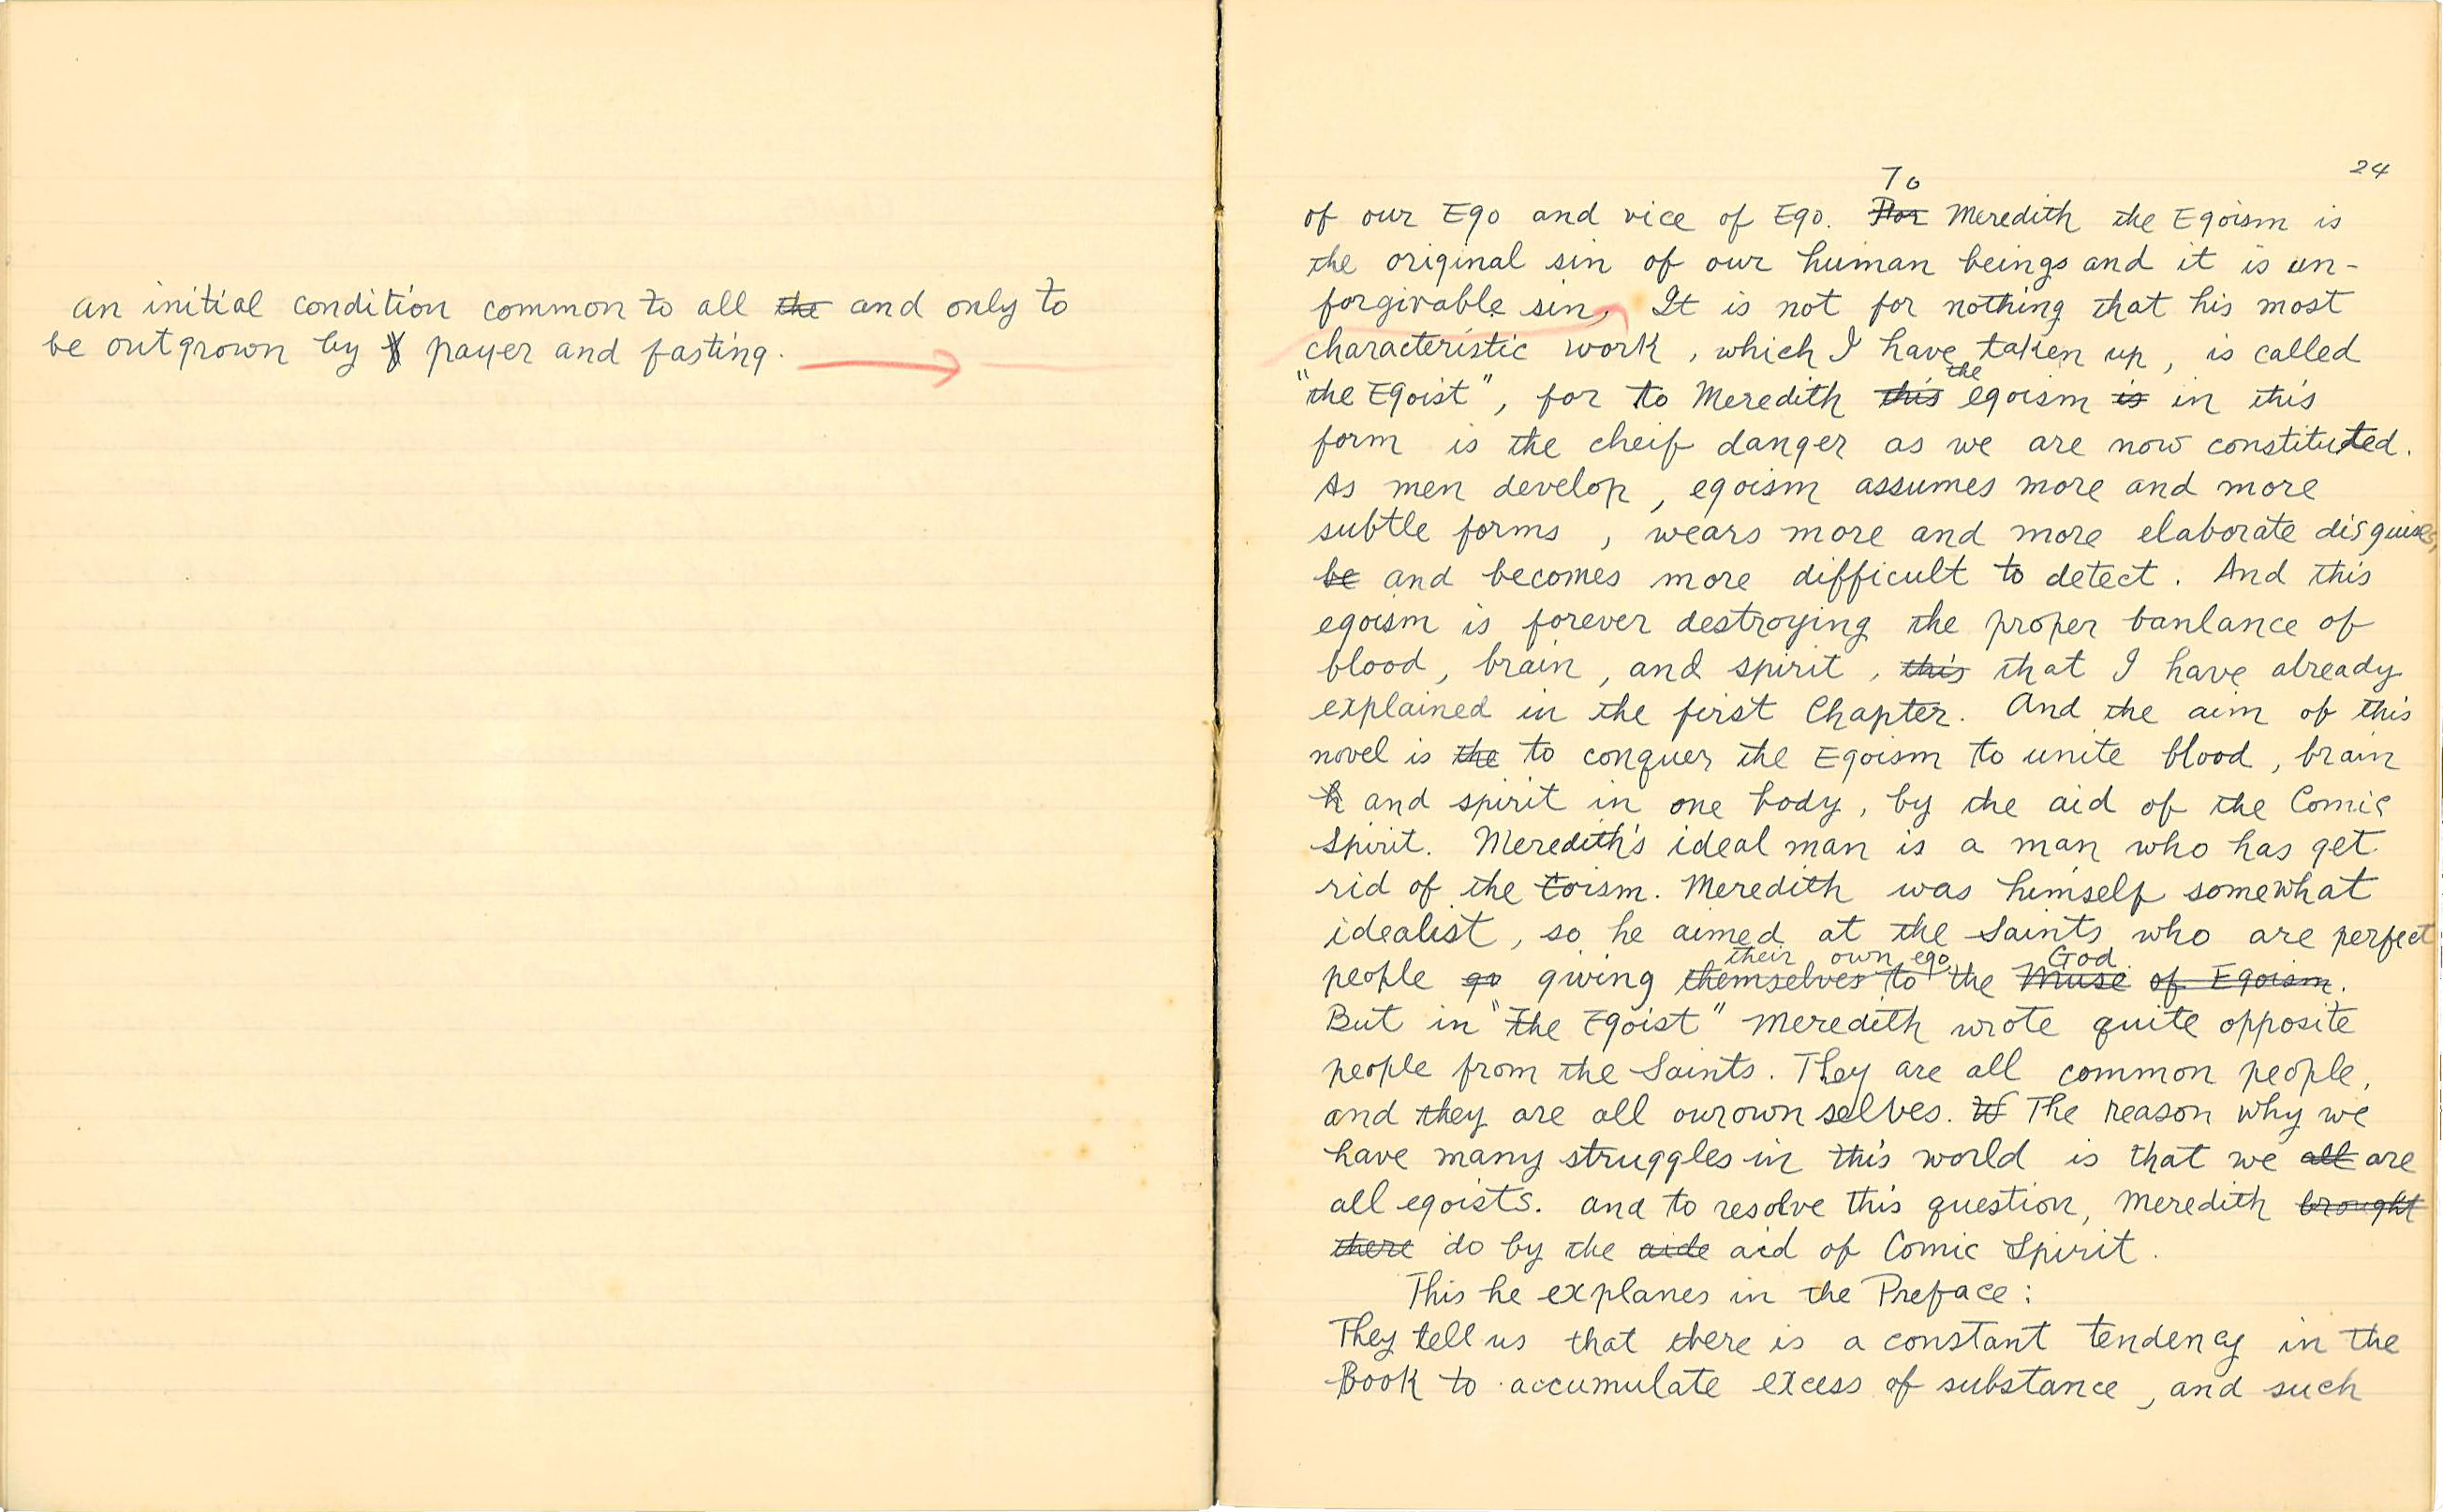 an initial condition common to all the and only to
be outgrown by payer and fasting.
24
To
of our Ego and vice of Ego. For Meredith the Egoism is
the original sin of our human beings and it is un-
forgivable sin, It is not for nothing that his most
characteristic work, which I have taken up, is called
the
"the Egoist", for to Meredith this egoism is in this
form is the cheif danger as we are now constituted.
As men develop, egoism assumes more and more
subtle forms, wears more and more elaborate disguises,
be and becomes more difficult to detect. And this
egoism is forever destroying the proper banlance of
blood, brain, and spirit, this that I have already
explained in the first Chapter. And the aim of this
novel is the to conquer the Egoism to unite blood, brain
and spirit in one body, by the aid of the Comic
Spirit. Meredith's ideal man is a man who has get
rid of the Eoism. Meredith was himself somewhat
idealist, so he aimed at the Saints who are perfect
their own ego God
people go giving themselves to the Muse of Egoism.
But in "The Egoist" Meredith wrote quite opposite
people from the Saints. They are all common people,
and they are all ourown selves. If The reason why we
have many struggles in this world is that we all are
all egoists. and to resolve this question, Meredith brought
there do by the aide aid of Comic Spirit.
This he explanes in the Preface:
They tell us that there is a constant tendency in the
Book to accumulate excess of substance, and such